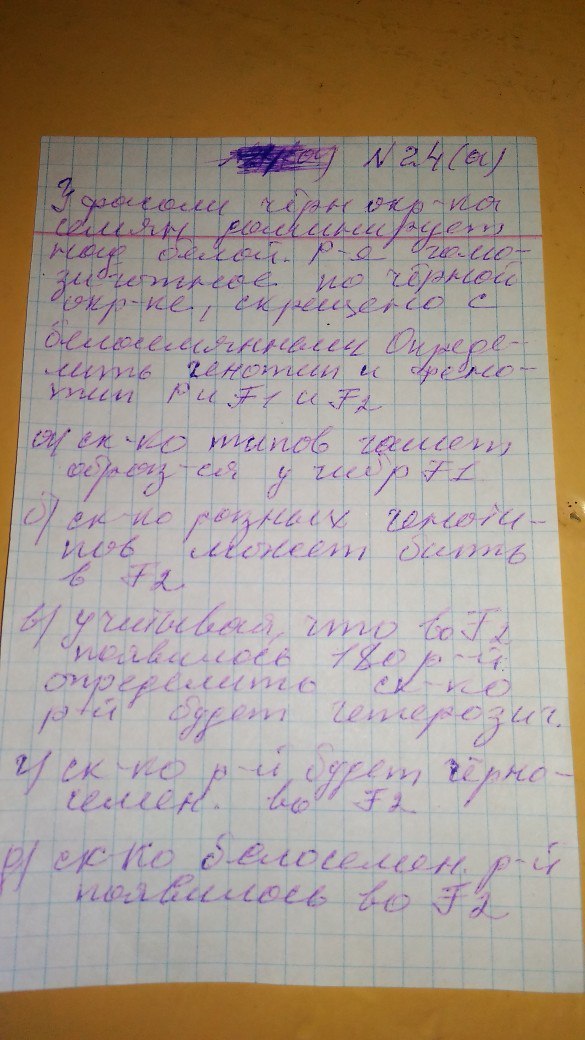 N 24 (а)
У фасоли чёрн окр-ка
семян доминирует
над белой. Р-е гомо-
зиготное по чёрной
окр-ке, скрещено с
белосемянным Опреде-
лить генотип и фено-
тип Р и F1 и F2
а) ск-ко типов гамет
образ-ся у гибр F1
б) ск-ко разных геноти-
пов может быть
в F2
в) учитывая, что во F2
появилось 180 р-й
определить ск-ко
р-й будет гетерозиг.
г) ск-ко р-й будет чёрно-
семен. во F2
р) ск-ко белосемен. р-й
появилось во F2